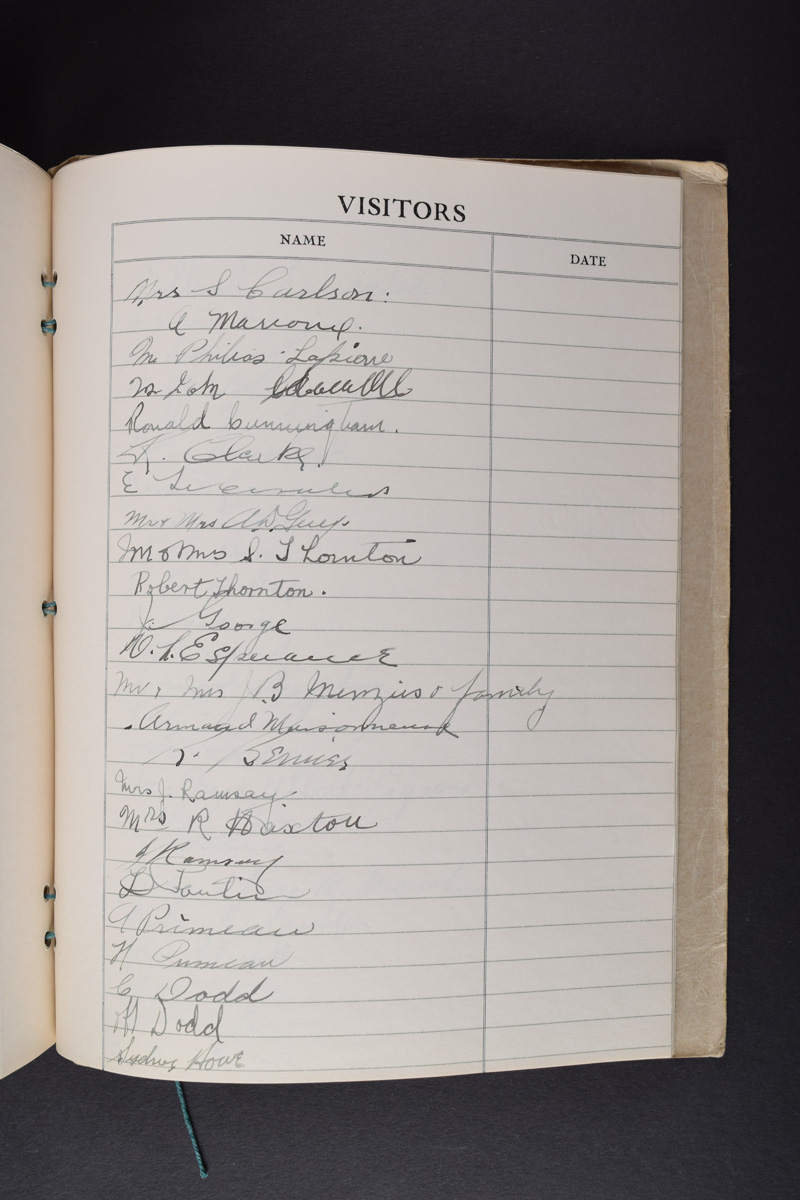 VISITORS
NAME
DATE
Mrs S Carlson:
A Marione.
Philias Lapierre
Ronald Cunningham.
K. Clarke
E
Mr & Mrs A.D. Guy.
Mr & Mrs S. Thornton
Robert Thornton.
J. George
W. L. Esperance
Mr & Mrs J B Menzies & family
Armand Maisonneuve
R. Bernier
Mrs J. Ramsay
Mrs R Haxton
J Ramsay
A Primeau
H Primeau
C Dodd
M Dodd
Sydney Howe